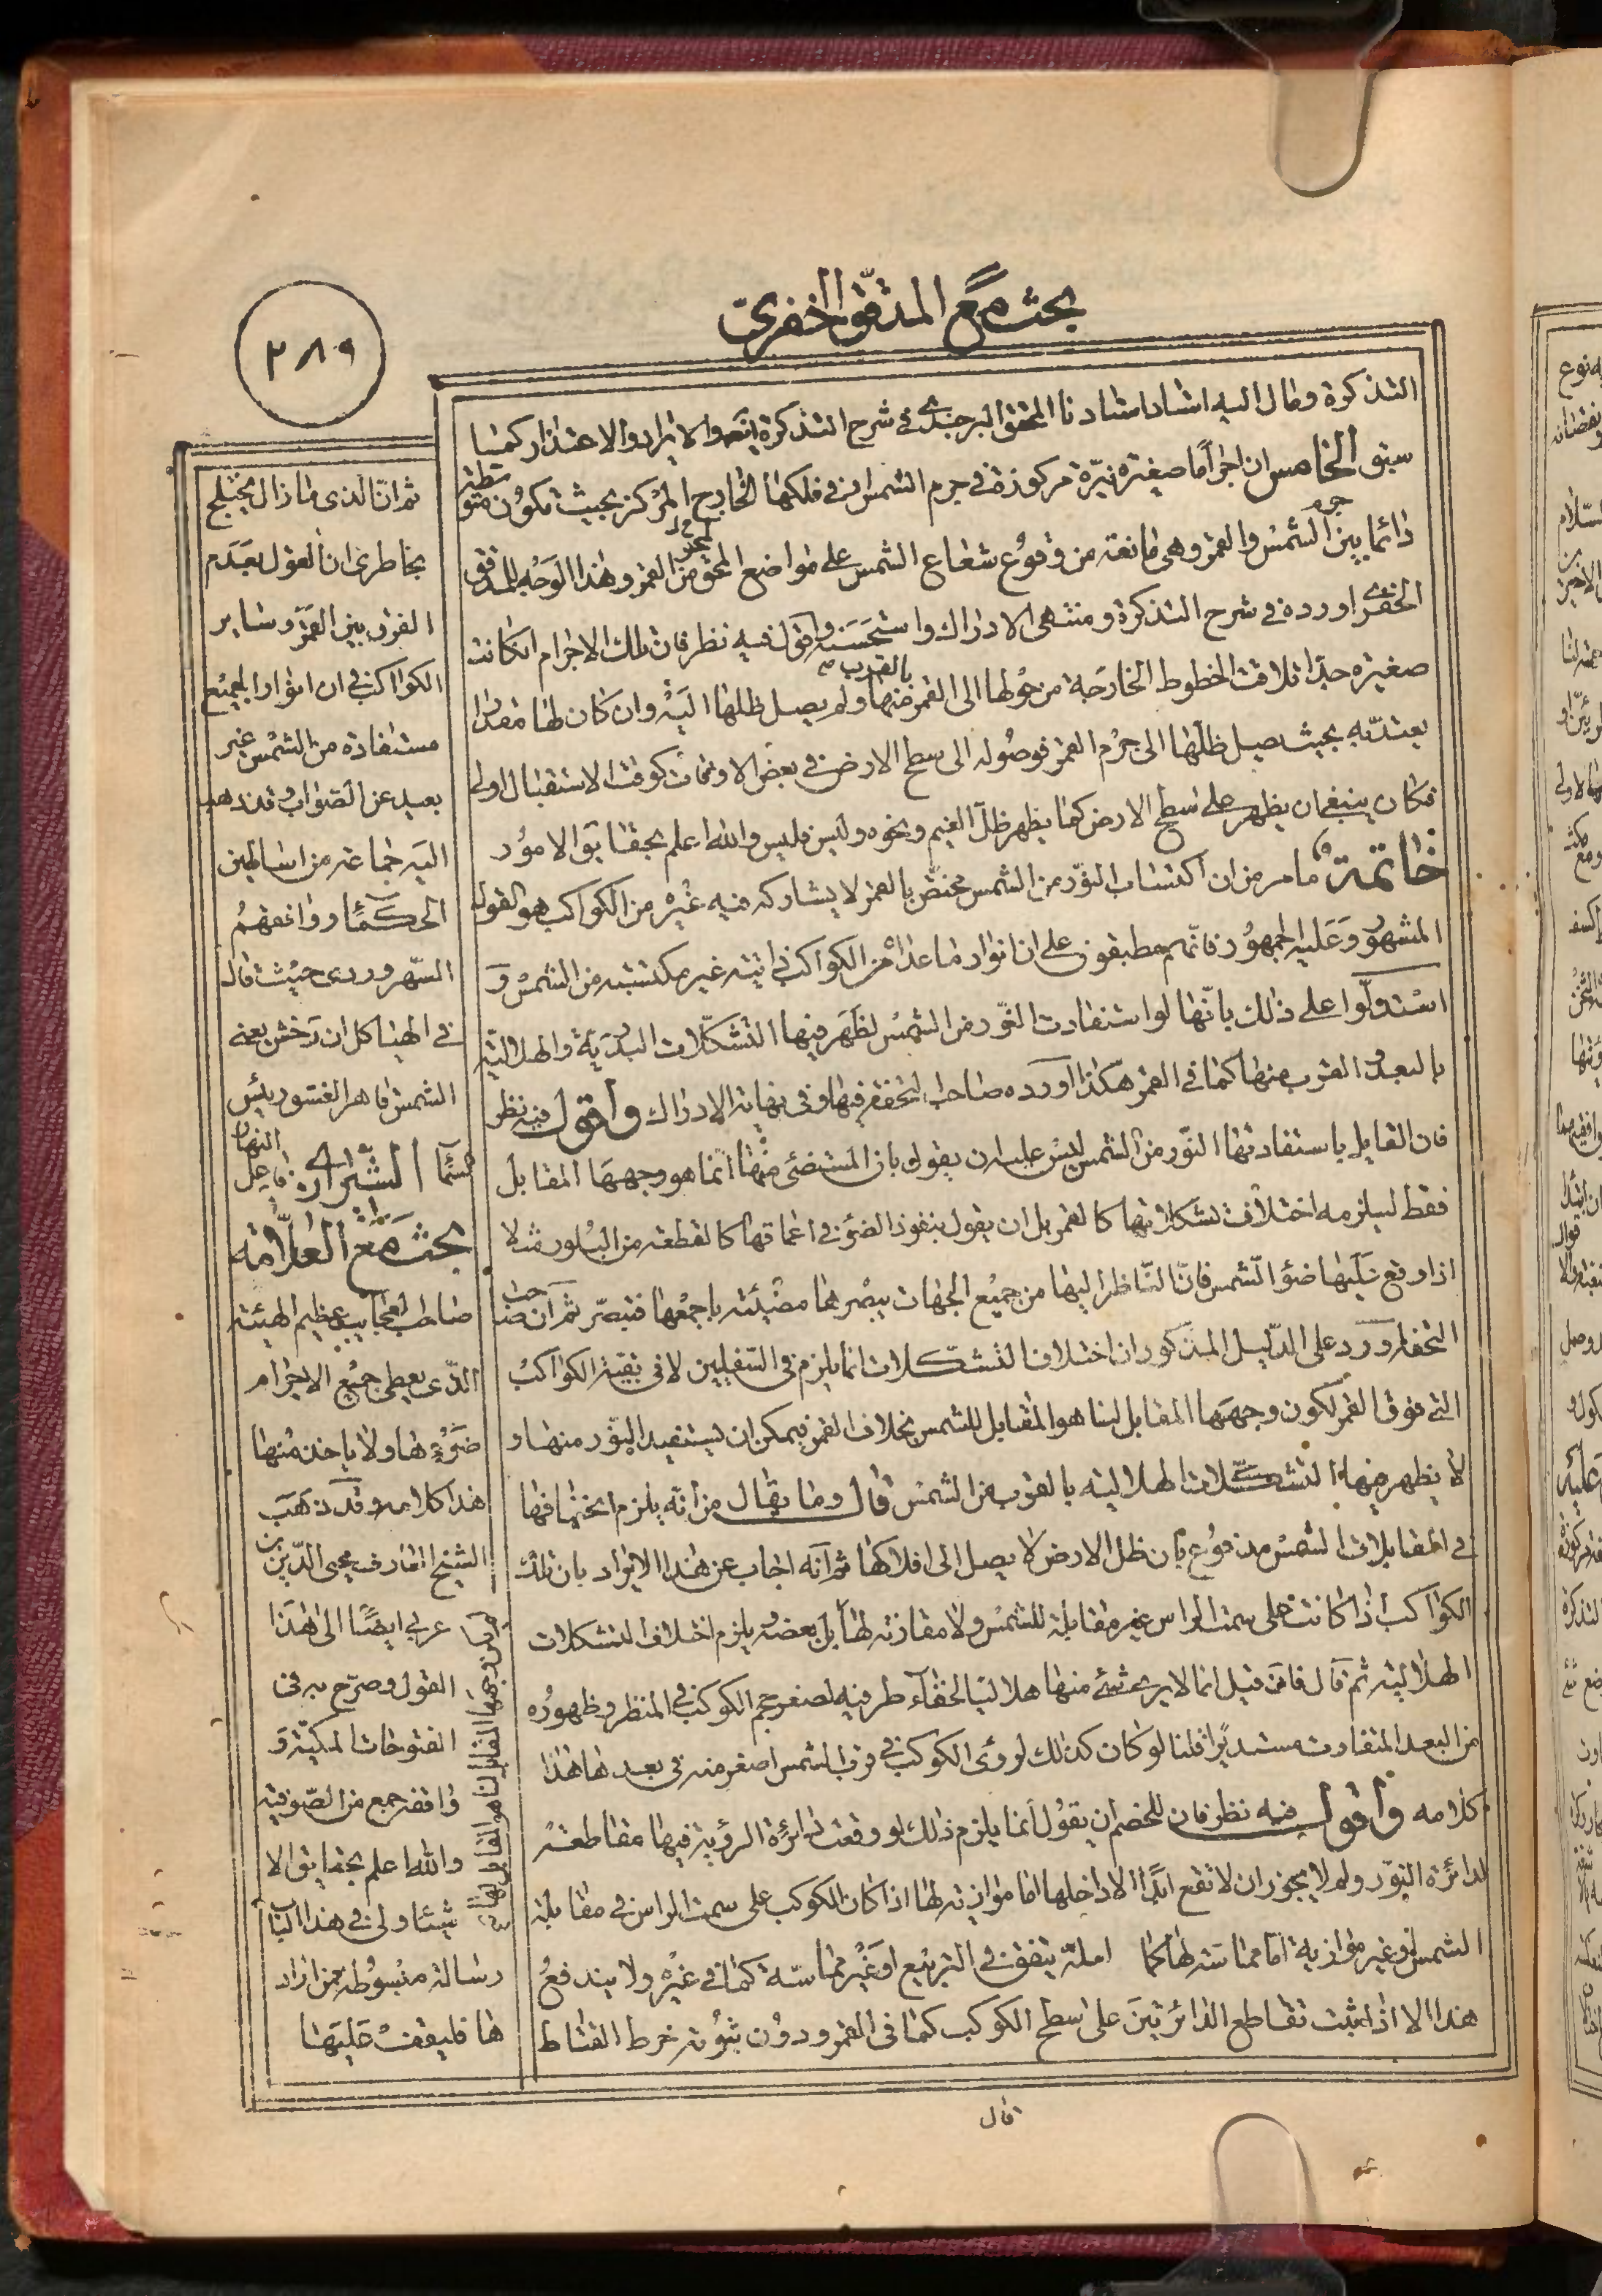 بحث مع المدقق الخفري
٢٨٩
التذكرة ومال اليه استاد استادنا المحقق البرجندي في شرح التذكرة انتهى والايراد والاعتذار كما
سبق الخامس ان اجراما صغيرة نيرة مركوزة في جرم الشمس او في فلكها الخارج المركز بحيث تكون متوسطة
دائما بين جرم الشمس والقمر وهي مانعة من وقوع شعاع الشمس على مواضع المحو من القمر وهذا الوجه للمدقق
الخفري اورده في شرح التذكرة ومنتهى الادراك واستحسنه واقول فيه نظر فان تلك الاجرام ان كانت
صغيرة جدا تلاقت الخطوط الخارجة من حولها الى القمر بالقرب منها ولم يصل ظلها اليه وان كان لها مقدار
يعتد به بحيث يصل ظلها الى جرم القمر فوصوله الى سطح الارض في بعض الاوقات كوقت الاستقبال اولى
فكان ينبغي ان يظهر على سطح الارض كما يظهر ظل الغيم ونحوه وليس فليس والله اعلم بحقايق الامور
خاتمة ما مر من ان اكتساب النور من الشمس مختص بالقمر لا يشاركه فيه غيره من الكواكب هو القول
المشهور وعليه الجمهور فانهم مطبقون على ان انوار ما عداه من الكواكب ذاتية غير مكتسبة من الشمس و
استدلوا على ذلك بانها لو استفادت النور من الشمس لظهر فيها التشكلات البدرية والهلالية
بالبعد والقرب منها كما في القمر هكذا اورده صاحب التحفة فيها وفي نهاية الادراك واقول فيه نظر
فان القايل باستفادتها النور من الشمس ليس عليه ان يقول بان المستضئ منها انما هو وجهها المقابل
فقط ليلزمه اختلاف تشكلاتها كالقمر بل ان يقول بنفوذ الضوء في اعماقها كالقطعة من البلور مثلا
اذا وقع عليها ضوء الشمس فان الناظر اليها من جميع الجهات يبصرها مضيئة باجمعها فتبصر ثم ان صاحب
التحفة اورد على الدليل المذكور ان اختلاف التشكلات انما يلزم في السفليين لا في بقية الكواكب
التي فوق القمر لكون وجهها المقابل لنا هو المقابل للشمس بخلاف القمر فيمكن ان يستفيد النور منها و
لا يظهر فيها التشكلات الهلالية بالقرب من الشمس قال وما يقال من انه يلزم انخسافها
في مقابلات الشمس مدفوع بان ظل الارض لا يصل الى افلاكها ثم انه اجاب عن هذا الايراد بان تلك
الكواكب اذا كانت على سمت الراس غير مقابلة للشمس ولا مقارنة لها بل بعضه يلزم اختلاف التشكلات
الهلالية ثم قال فان قيل انما لا يرى شئ منها هلاليا لخفاء طرفيه لصغر حجم الكوكب في المنظر وظهوره
من البعد المتفاوت مستديرا قلنا لو كان كذلك لرؤى الكوكب في قرب الشمس اصغر منه في بعدها هذا
كلامه واقول فيه نظر فان للخصم ان يقول انما يلزم ذلك لو وقعت دائرة الرؤية فيها مقاطعة
لدائرة النور ولم لا يجوز ان لا تقع ابدا الا داخلها اما موازية لها اذا كان الكوكب على سمت الراس في مقابلة
الشمس او غير موازية اما مماسة لها كما لعله يتفق في التربيع او غير مماسة كما في غيره ولا يندفع
هذا الا اذا ثبت تقاطع الدائرتين على سطح الكوكب كما في القمر ودون ثبوته خرط القتاد
قال
ثم ان الذي ما زال يختلج
بخاطري ان القول بعدم
الفرق بين القمر وساير
الكواكب في ان انوار الجميع
مستفادة من الشمس غير
بعيد عن الصواب وقد ذهب
اليه جماعة من اساطين
الحكماء ووافقهم
السهروردي حيث قال
في الهياكل ان رخش يعني
الشمس قاهر الغسق رئيس
السماء فاعل النهار
بحث مع العلامة الشيرازي
صاحب العجايب عظيم الهيئة
الذي يعطي جميع الاجرام
ضوءها ولا ياخذ منها
هذا كلامه وقد ذهب
الشيخ العارف محيي الدين بن
عربي ايضا الى هذا
القول وصرح به في
الفتوحات المكية و
وافقه جمع من الصوفية
والله اعلم بحقايق الا
شياء ولي في هذا الباب
رسالة مبسوطة من اراد
ها فليقف عليها
وجهها المقابل لنا هو المقابل لها